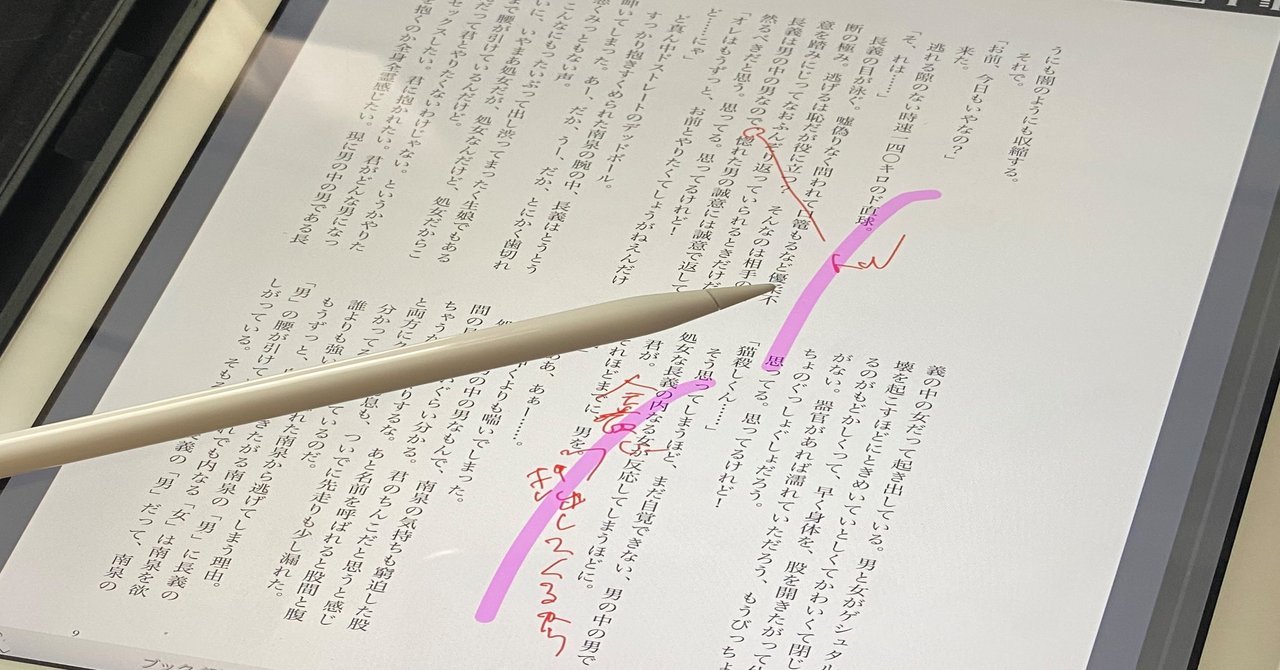 うにも闇のようにも収縮する。
それで。
「お前、今日もいやなの？」
来た。
逃れる隙のない時速一四〇キロのド直球。
「そ、れは……」
長義の目が泳ぐ。嘘偽りなく問われて口篭もるなど優柔不
断の極み。逃げるは恥だが役に立つ？　そんなのは相手の
意を踏みにじってなおふんぞり返っていられるときだけだ
長義は男の中の男なので、惚れた男の誠意には誠意で返して
然るべきだと思う。思ってる。思ってるけれど！
「オレはもうずっと、お前とやりたくてしょうがねえんだけ
ど……にゃ」
ど真ん中ドストレートのデッドボール。
すっかり抱きすくめられた南泉の腕の中、長義はとうとう
呻いてしまった。あー、だか、うー、だか、とにかく歯切れ
悪くみっともない声。
こんなにもったいぶって出し渋ってまったく生娘でもある
いに、いやまあ処女だが、処女なんだけど、処女だからこ
まで腰が引けているんだけど。
だって君とやりたくないわけじゃない。というかやりた
セックスしたい。君に抱かれたい。君がどんな男になっ
を抱くのか全身全霊感じたい。現に男の中の男である長
義の中の女だって起き出している。男と女がゲシュタル
壊を起こすほどにときめいていとしくてかわいくて閉じ
るのがもどかしくって、早く身体を、股を開きたがって
がない。器官があれば濡れていただろう、もうびっちょ
ちょのぐっしょぐしょだろう。
思ってる。思ってるけれど！
「猫殺しくん……」
そう思ってしまうほど、まだ自覚できない、男の中の男で
処女な長義の内なる女が反応してしまうほどに。
君が。
それほどまでに、男を
あ、あぁ！……。
くよりも喘いでしまった。
の中の男なもんで、南泉の気持ちも窮迫した股
ぐらい分かる。君のちんこだと思うと感じ
りするな。あと名前を呼ばれると股間と腹
息も、ついでに先走りも少し漏れた。
ているのだ。
れた南泉から逃げてしまう理由。
きたがる南泉の「男」に長義の
でも内なる「女」は南泉を欲
義の「男」だって、南泉の
「男」の腰が引けて
しがっている。
9